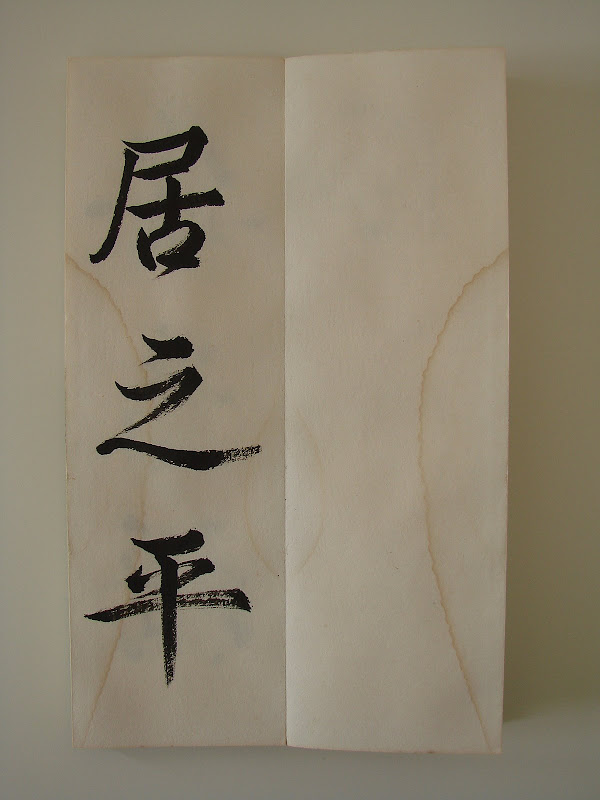 居之平